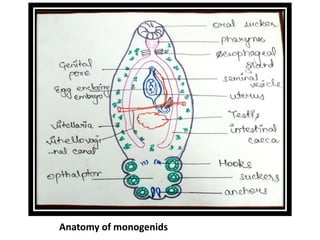 oral sucker
pharynx
Oesophageal
gland
Genital
pore
seminal
vesicle
Egg enclosing
embryo
uterus
Testis
Vitellaria
intestinal
caeca
Vitellovagi
-nal canal
Hooks
opthaptor
suckers
anchors
Anatomy of monogenids